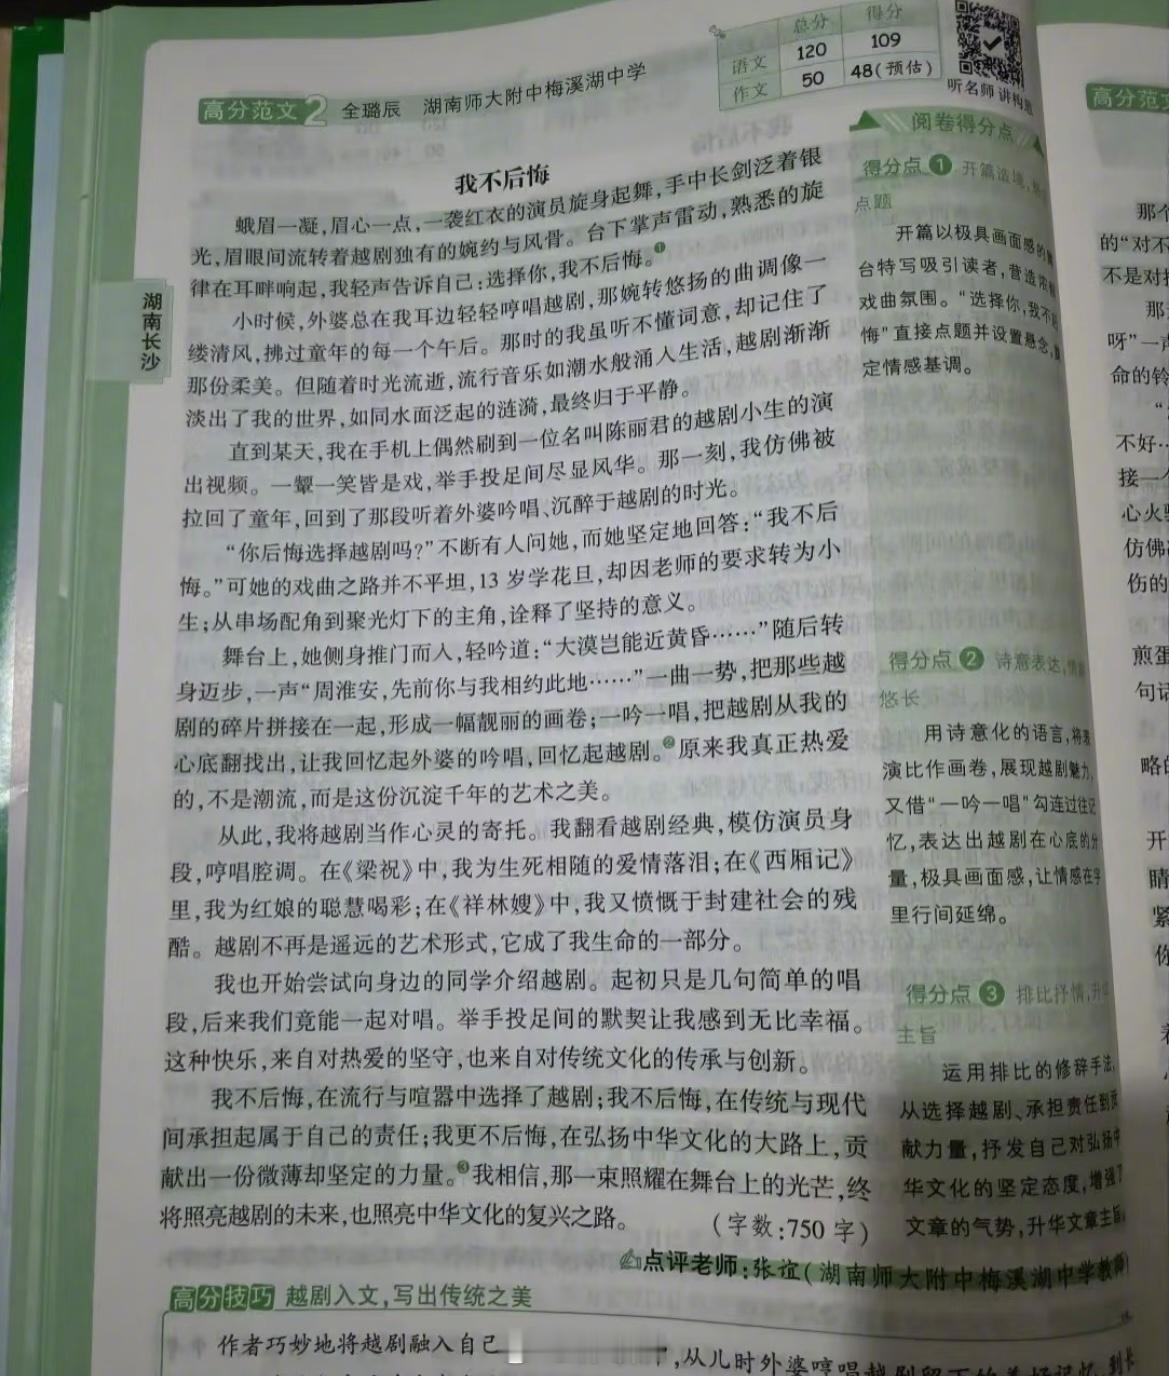 总分 得分
语文 120 109
作文 50 48(预估)
听名师 讲构思
高分范文2 全璐辰 湖南师大附中梅溪湖中学
湖南长沙
我不后悔
蛾眉一凝，眉心一点，一袭红衣的演员旋身起舞，手中长剑泛着银
光，眉眼间流转着越剧独有的婉约与风骨。台下掌声雷动，熟悉的旋
律在耳畔响起，我轻声告诉自己：选择你，我不后悔。①
小时候，外婆总在我耳边轻轻哼唱越剧，那婉转悠扬的曲调像一
缕清风，拂过童年的每一个午后。那时的我虽听不懂词意，却记住了
那份柔美。但随着时光流逝，流行音乐如潮水般涌入生活，越剧渐渐
淡出了我的世界，如同水面泛起的涟漪，最终归于平静。
直到某天，我在手机上偶然刷到一位名叫陈丽君的越剧小生的演
出视频。一颦一笑皆是戏，举手投足间尽显风华。那一刻，我仿佛被
拉回了童年，回到了那段听着外婆吟唱、沉醉于越剧的时光。
“你后悔选择越剧吗？”不断有人问她，而她坚定地回答：“我不后
悔。”可她的戏曲之路并不平坦，13 岁学花旦，却因老师的要求转为小
生；从串场配角到聚光灯下的主角，诠释了坚持的意义。
舞台上，她侧身推门而入，轻吟道：“大漠岂能近黄昏……”随后转
身迈步，一声“周淮安，先前你与我相约此地……”一曲一势，把那些越
剧的碎片拼接在一起，形成一幅靓丽的画卷；一吟一唱，把越剧从我的
心底翻找出，让我回忆起外婆的吟唱，回忆起越剧。②原来我真正热爱
的，不是潮流，而是这份沉淀千年的艺术之美。
从此，我将越剧当作心灵的寄托。我翻看越剧经典，模仿演员身
段，哼唱腔调。在《梁祝》中，我为生死相随的爱情落泪；在《西厢记》
里，我为红娘的聪慧喝彩；在《祥林嫂》中，我又愤慨于封建社会的残
酷。越剧不再是遥远的艺术形式，它成了我生命的一部分。
我也开始尝试向身边的同学介绍越剧。起初只是几句简单的唱
段，后来我们竟能一起对唱。举手投足间的默契让我感到无比幸福。
这种快乐，来自对热爱的坚守，也来自对传统文化的传承与创新。
我不后悔，在流行与喧嚣中选择了越剧；我不后悔，在传统与现代
间承担起属于自己的责任；我更不后悔，在弘扬中华文化的大路上，贡
献出一份微薄却坚定的力量。③我相信，那一束照耀在舞台上的光芒，终
将照亮越剧的未来，也照亮中华文化的复兴之路。 (字数：750 字)
点评老师：张谊(湖南师大附中梅溪湖中学教师)
高分技巧 越剧入文，写出传统之美
作者巧妙地将越剧融入自己
，从儿时外婆哼唱越剧留下的美好记忆，到长
阅卷得分点
得分点① 开篇造境，
点题
开篇以极具画面感的
台特写吸引读者，营造浓
戏曲氛围。“选择你，我不
悔”直接点题并设置悬念，
定情感基调。
得分点② 诗意表达，情
悠长
用诗意化的语言，将表
演比作画卷，展现越剧魅力，
又借“一吟一唱”勾连过往记
忆，表达出越剧在心底的分
量，极具画面感，让情感在字
里行间延绵。
得分点③ 排比抒情，升华
主旨
运用排比的修辞手法，
从选择越剧、承担责任到贡
献力量，抒发自己对弘扬中
华文化的坚定态度，增强了
文章的气势，升华文章主旨。
高分范文
那个
的“对不
不是对
那
呀”一声
命的铃
不好…
接一个
心火
仿佛
伤的
煎蛋
句话
略的
开
睛
紧
你